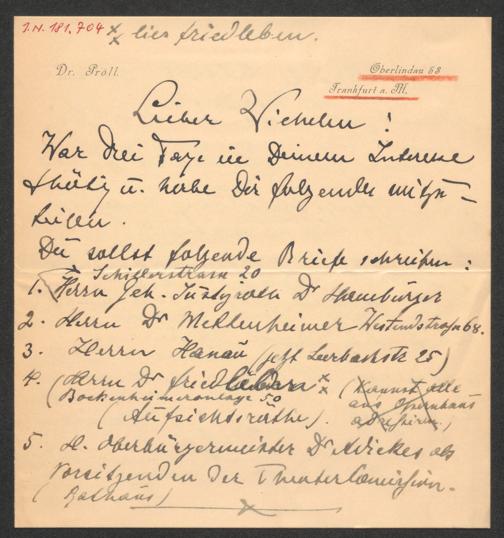 J.N. 181.704
× lies Friedleben.
Dr. Pröll.
Oberlindau 68
Frankfurt a. M.
Lieber Wilhelm!
War drei Tage in Deinem Interesse
thätig u. habe Dir folgendes mitzu-
teilen.
Du sollst folgende Briefe schreiben:
Schillerstrasse 20
1. Herrn Geh. Justizrath Dr Hamburger
2. Herrn Dr Mettenheimer Westendstrasse 68.
3. Herrn Hanau (jetzt Leerbachstr 25)
4. (Herrn Dr Friedleben ×
(Bockenheimeranlage 50
(Aufsichtsräthe).
(Kannst alle
ans Opernhaus
adressiren.)
5. H. Oberbürgermeister Dr Adickes als
Vorsitzenden der Theatercommission.
(Rathaus)